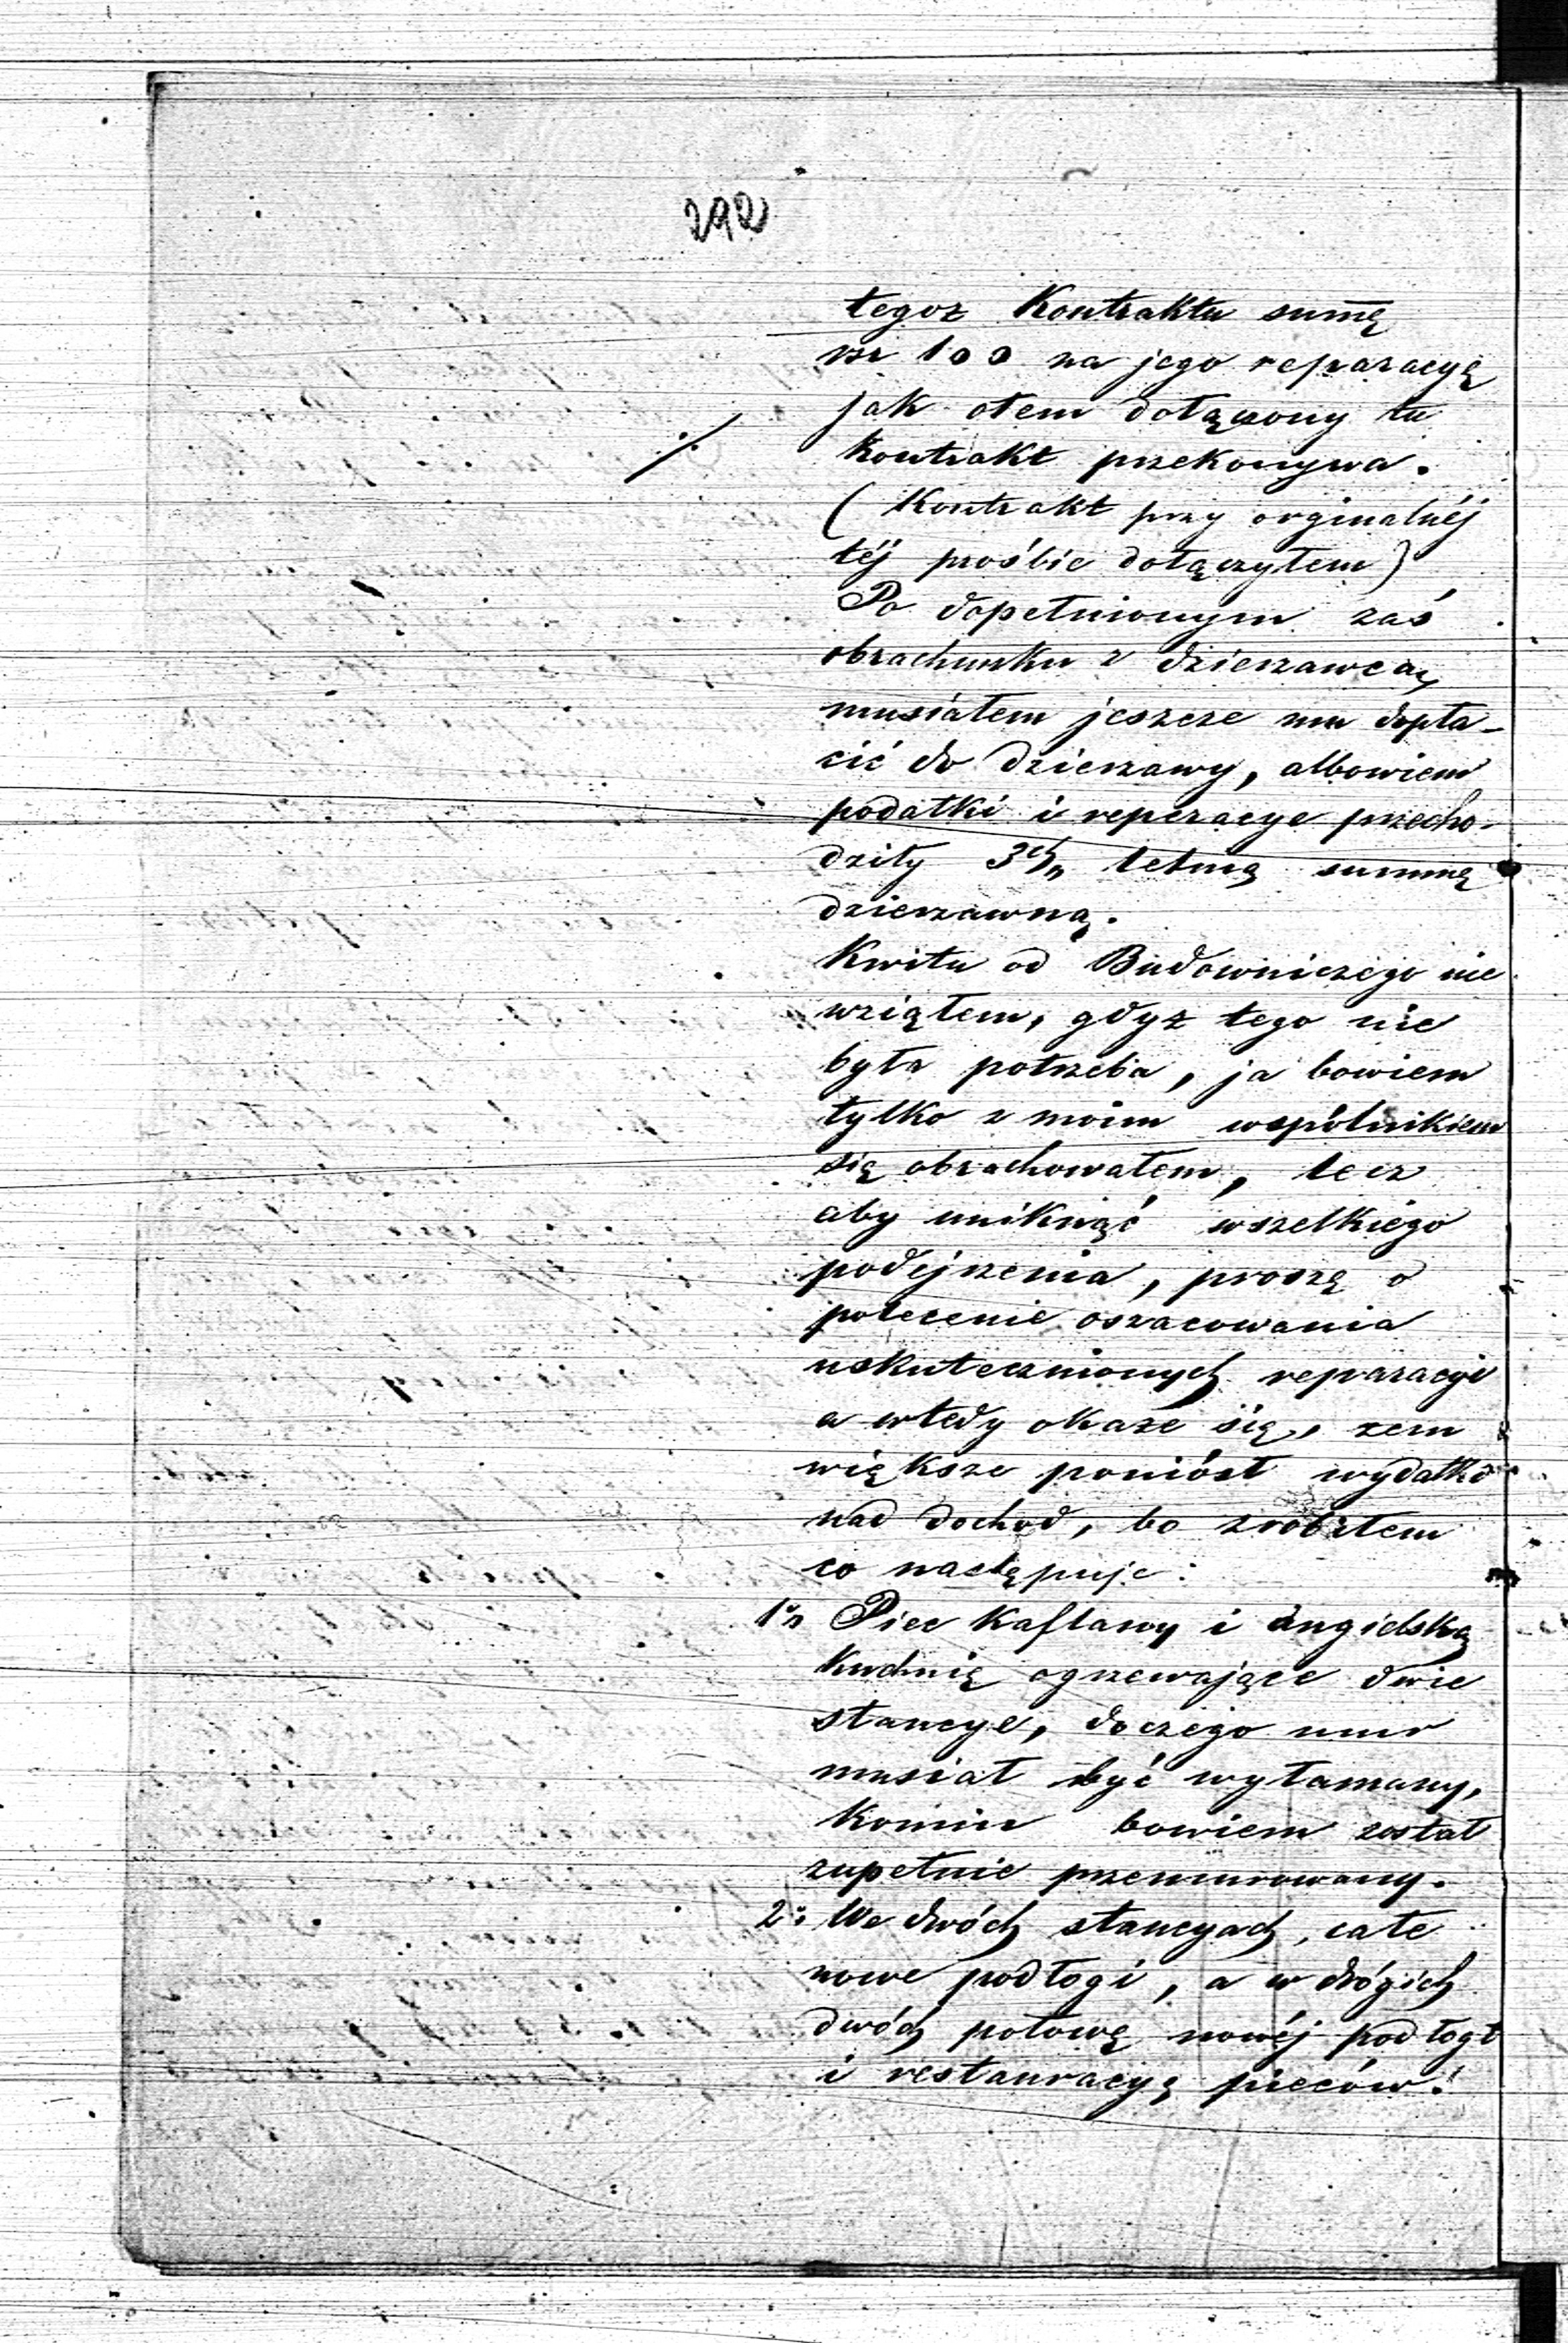 292
tegoz Kontraktu summę
rsr 100 na jego reparacyą
jak otem dołączony tu
./. Kontrakt przekonywa.
(Kontrakt przy orginalnéj
téj prośbie dołączyłem)
Po dopełnionym zaś
obrachunku z dzierzawcą,
musiałem jeszcze mu dopła-
cić do dzierzawy, albowiem
podatki i reperacye przecho-
dziły 3ch letnią summę
dzierzawną.
Kwitu od Budowniczego nie
wziąłem, gdyz tego nie
była potrzeba, ja bowiem
tylko z moim wspólnikiem
się obrachowałem, lecz
aby uniknąć wszelkiego
podejrzenia, proszę o
polecenie oszacowania
uskutecznionych reparacyi
a wtedy okaze się, zem
większe poniósł wydatki
nad dochod, bo zrobiłem
co następuje:
1o Piec kaflawy i angielską
Kuchnię ogrzewające dwie
stancye, doczego mur
musiał być wyłamany,
Komin bowiem został
zupełnie przemurowany.
2o We dwóch stancyach, całe
nowe podłogi, a w drógich
dwóch połowę nowéj podłogi
i restauracyą pieców.